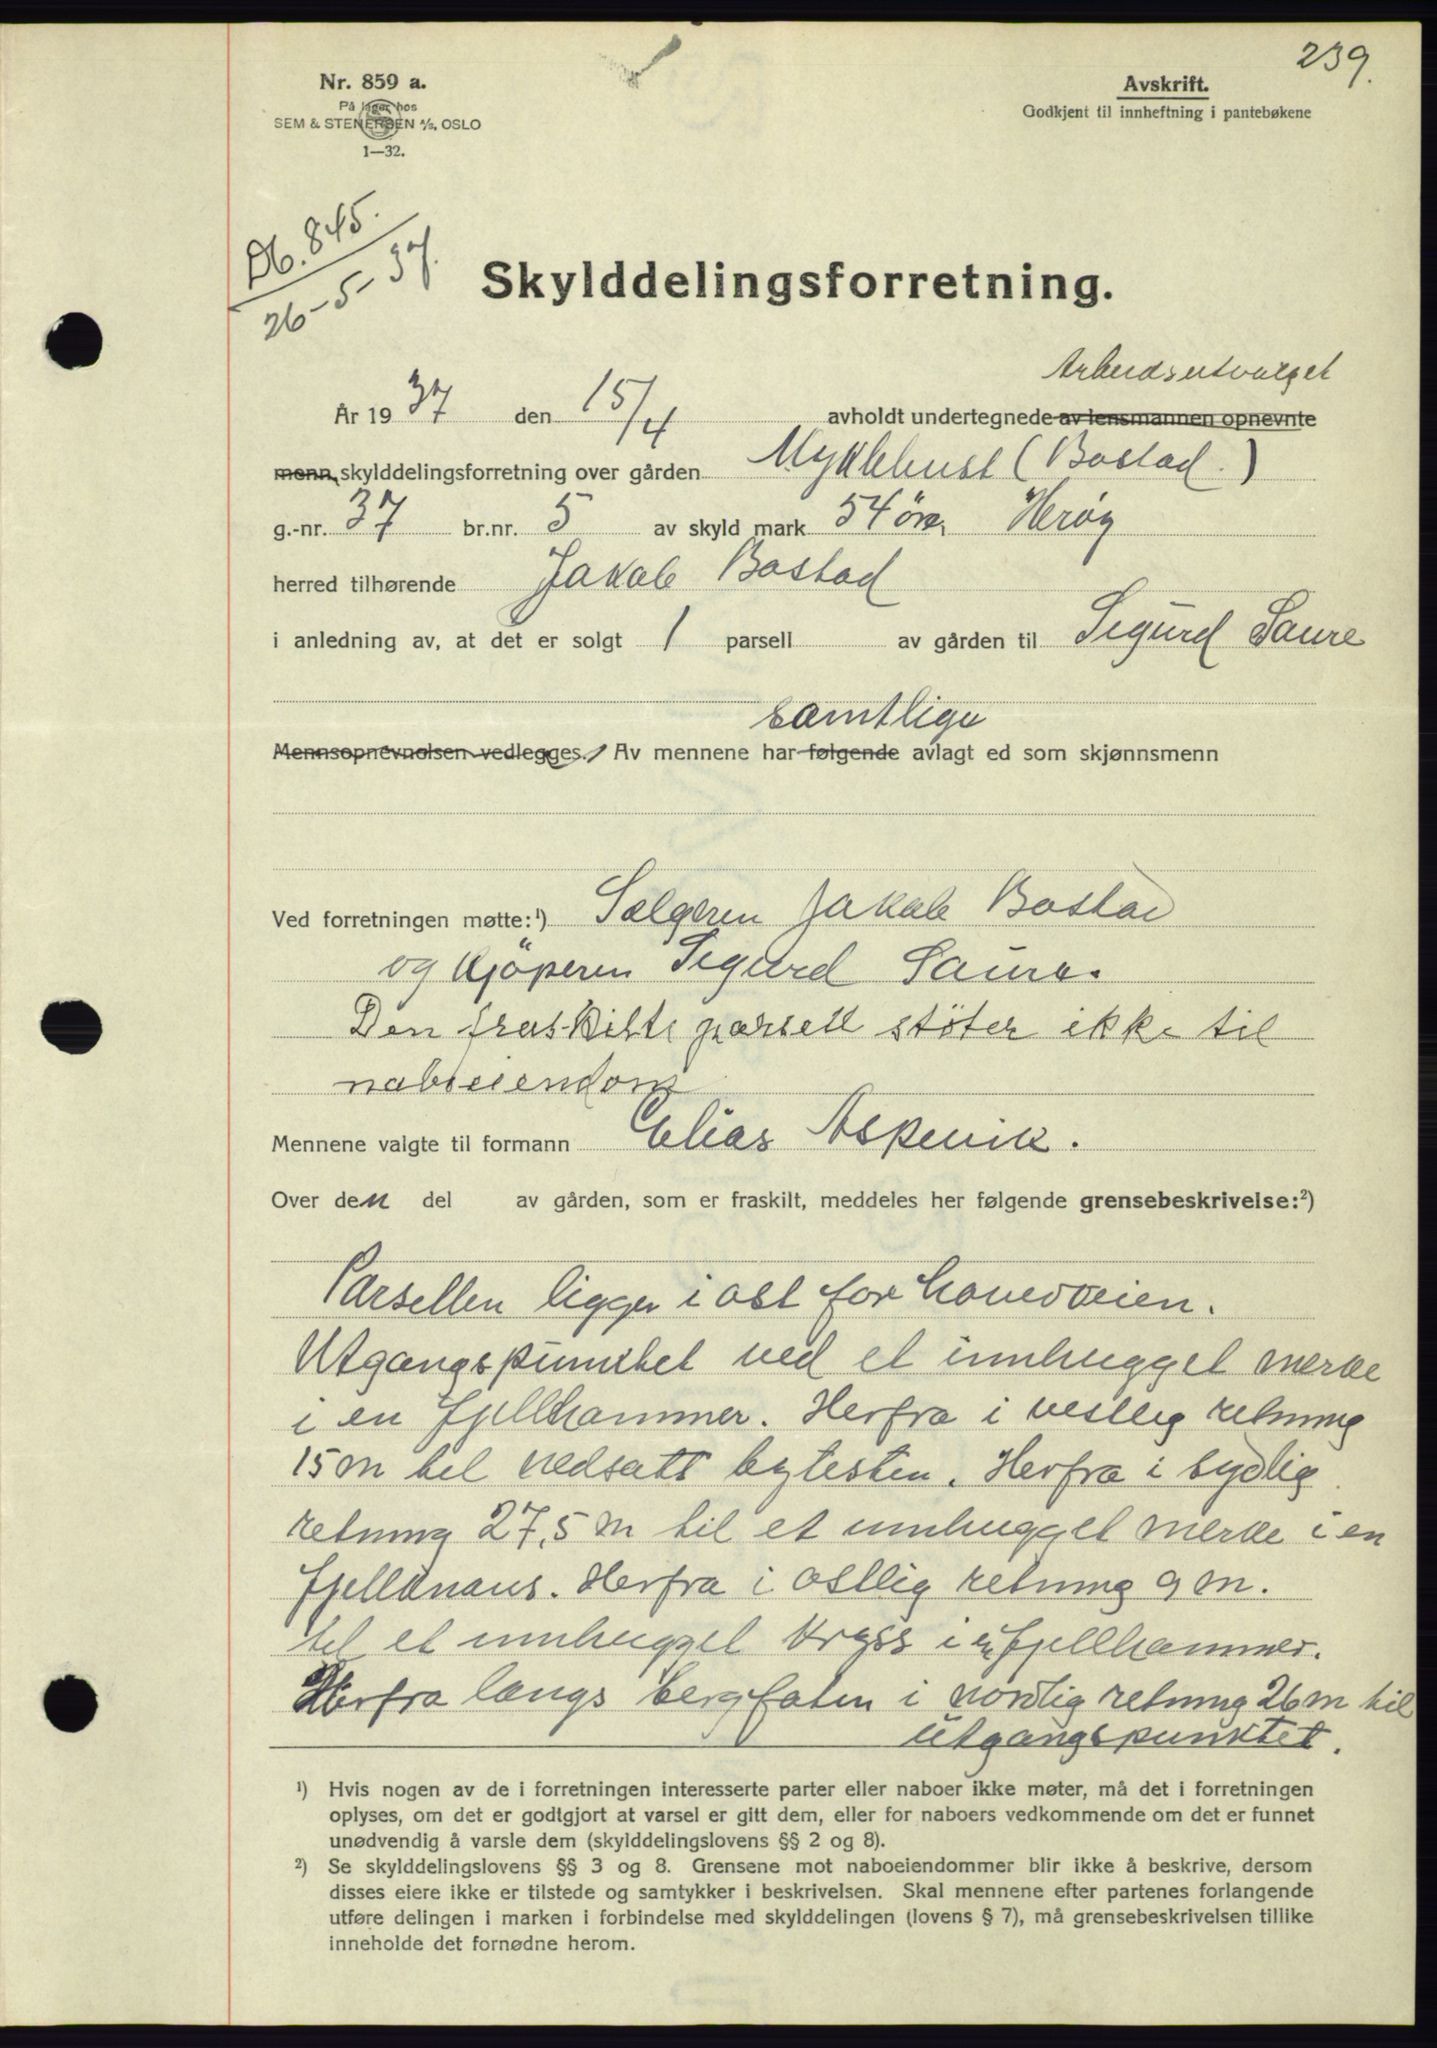 239.
Nr. 859 a.
På lager hos
SEM & STENERSEN A/S, OSLO
1—32.
Avskrift.
Godkjent til innheftning i pantebøkene
Db. 845.
26-5-37.
Skylddelingsforretning.
Arbeidsutvalget
År 1937 den 15/4 avholdt undertegnede av lensmannen opnevnte
menn skylddelingsforretning over gården Myklebust (Bostad.)
g.-nr. 37 br.nr. 5 av skyld mark 54 öre, Herøy
herred tilhørende Jakob Bostad
i anledning av, at det er solgt 1 parsell av gården til Sigurd Saure
samtlige
Mennsopnevnelsen vedlegges. Av mennene har følgende avlagt ed som skjønnsmenn
Ved forretningen møtte:¹) Selgeren Jakob Bostad
og kjöperen Sigurd Saure.
Den fraskilte parsell stöter ikke til
naboeiendom
Mennene valgte til formann Elias Aspevik.
Over den del av gården, som er fraskilt, meddeles her følgende grensebeskrivelse:²)
Parsellen ligger i ost for hovedveien.
Utgangspunktet ved et innhugget merke
i en fjellhammer. Herfra i vestlig retning
15 m til nedsatt bytesten. Herfra i sydlig
retning 27,5 m til et innhugget merke i en
fjellknaus. Herfra i ostlig retning 9 m.
til et innhugget kryss i en fjellhammer.
Herfra langs bergfoten i nordlig retning 26 m til
utgangspunktet.
¹) Hvis nogen av de i forretningen interesserte parter eller naboer ikke møter, må det i forretningen
oplyses, om det er godtgjort at varsel er gitt dem, eller for naboers vedkommende om det er funnet
unødvendig å varsle dem (skylddelingslovens §§ 2 og 8).
²) Se skylddelingslovens §§ 3 og 8. Grensene mot naboeiendommer blir ikke å beskrive, dersom
disses eiere ikke er tilstede og samtykker i beskrivelsen. Skal mennene efter partenes forlangende
utføre delingen i marken i forbindelse med skylddelingen (lovens § 7), må grensebeskrivelsen tillike
inneholde det fornødne herom.